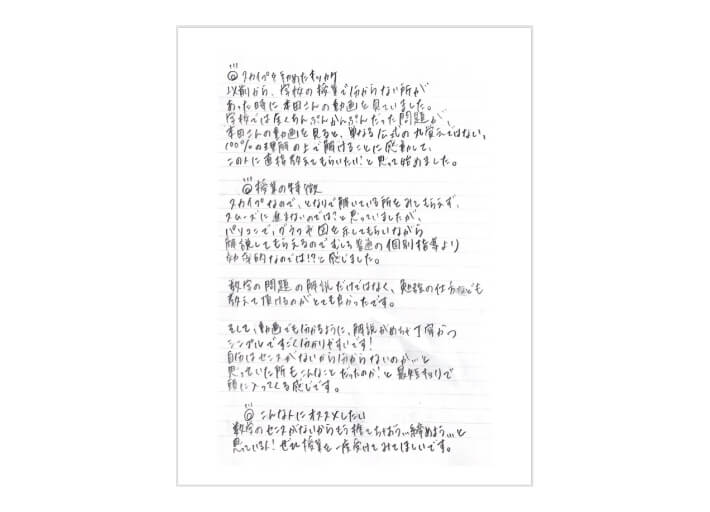 ◎スカイプを始めたキッカケ
以前から、学校の授業で分からない所が
あった時に本田さんの動画を見ていました。
学校では全くちんぷんかんぷんだった問題が、
本田さんの動画を見ると、単なる公式の丸覚えではない、
100%の理解の上で解けることに感動して、
この人に直接教えてもらいたい！と思って始めました。
◎授業の特徴
スカイプなので、となりで解いている所をみてもらえず、
スムーズに進まないのでは？と思っていましたが、
パソコンで、グラフや図を示してもらいながら
解説してもらえるのでむしろ普通の個別指導より
効率的なのでは!?と感じました。
数学の問題の解説だけではなく、勉強の仕方なども
教えて頂けるのがとても良かったです。
そして、動画でも分かるように、解説がめちゃ丁寧かつ
シンプルですごく分かりやすいです！
自分はセンスがないから分からないのか…と
思っていた所もこんなことだったのか！と スッキリ
頭に入ってくる感じです。
◎こんな人にオススメしたい
数学のセンスがないからもう捨てちゃおう…諦めよう…と
思っている人！ぜひ授業を一度受けてみてほしいです。